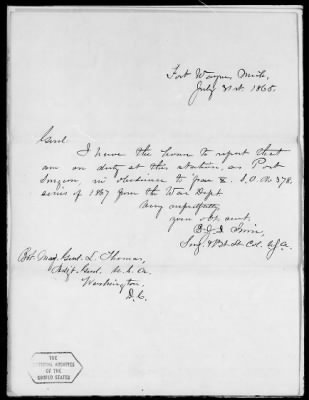 Fort Wayne, Mich,
July 31st 1868.
Genl.
I have the honor to report that
am on duty at this station, as Post
Surgeon, in obedience to par 8. S.O. No 378,
series of 1867 from the War Dept
Very respectfully
your obt. servt.
B. J. D. Irwin,
Surg. & Bvt. Lt. Col. U.S.A.
Bvt Maj Genl. L. Thomas,
Adjt. Genl. U.S.A.
Washington,
D.C.
THE
NATIONAL ARCHIVES
OF THE
UNITED STATES